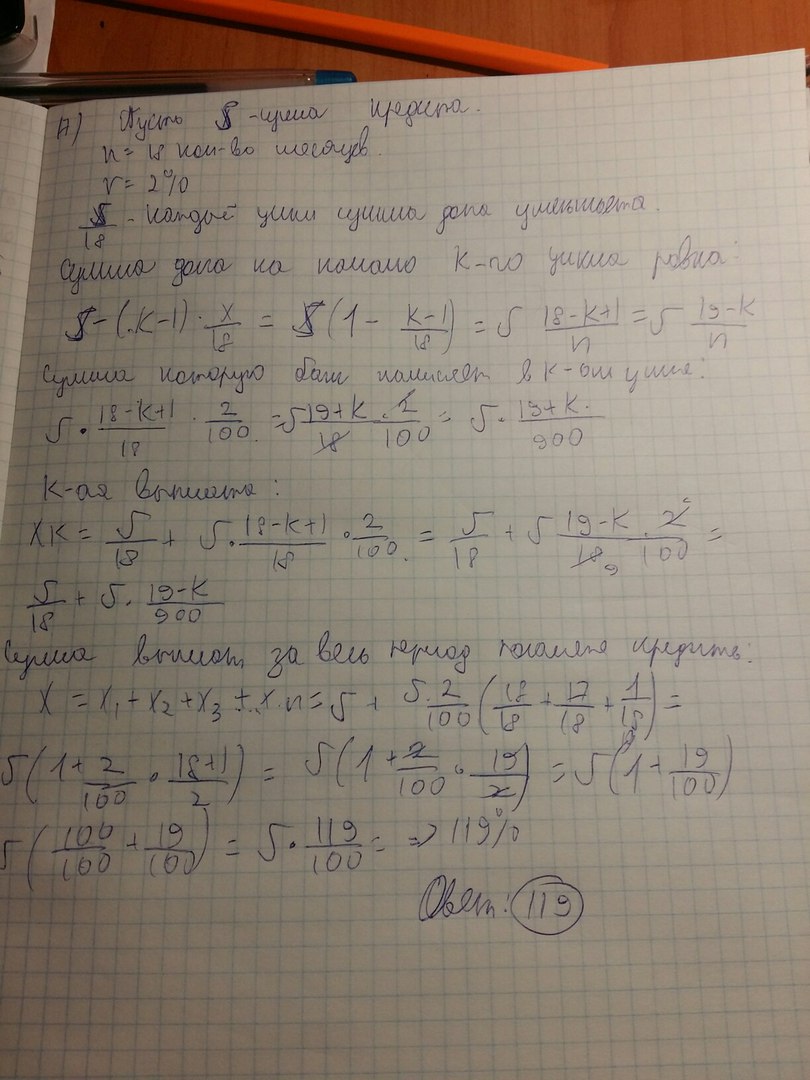 17) Пусть S - сумма кредита.
n = 18 кол-во месяцев.
r = 2%
S/18 - каждый цикл сумма долга уменьшается.
Сумма долга на начало K-го цикла равна:
S - (K-1) · x/18 = S(1 - (K-1)/18) = S (18-K+1)/n = S (19-K)/n
Сумма которую банк начислет в K-ом цикле:
S · (18-K+1)/18 · 2/100 = S (19+K)/18 · 2/100 = S · (19+K)/900
K-ая выплата:
XK = S/18 + S · (18-K+1)/18 · 2/100 = S/18 + S (19-K)/18 · 2/100 =
S/18 + S · (19-K)/900
Сумма выплат за весь период погашения кредита:
X = X₁ + X₂ + X₃ + ... x·n = S + S·2/100 (18/18 + 17/18 + 1/18) =
S(1 + 2/100 · (18+1)/2) = S(1 + 2/100 · 19/2) = S(1 + 19/100)
S(100/100 + 19/100) = S · 119/100 = => 119%
Овет: 119